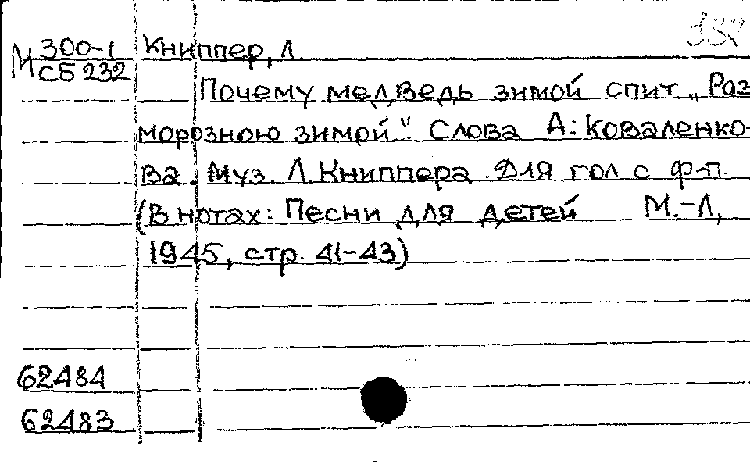 М 300-1 Книппер, Л.
СБ 232
Почему медведь зимой спит „Раз
морозною зимой". Слова А. Коваленко-
ва. Муз. Л. Книппера. Для гол с ф-п.
(В нотах: Песни для детей М.-Л,
1945, стр. 41-43)
62484
62483